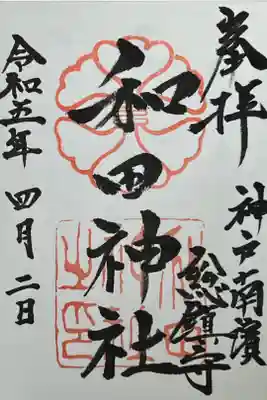 奉拝
神戸南濱
総鎮守
和田神社
令和五年 四月 二日